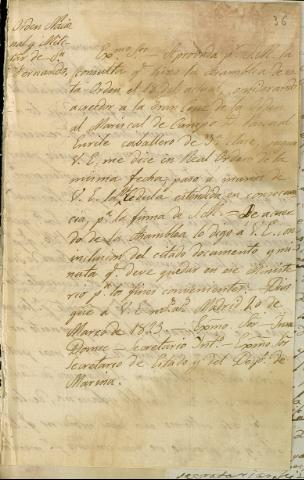 36
Orden Nacio
nal y Mili
tar de Sn
Fernando.
Exmo Sor = Aprobada pr S.M. la
consulta qe hizo la Asamblea de es
ta Orden el 13 del actual, considerando
acreedor a la Gran Cruz de la
al Mariscal de Campo Dn
caballero de 3a clase, segun
V.E. me dice en Real Orden de la
misma fecha, paso a manos de
V.E. la Cedula estendida en consecuen
cia, pa la firma de S.M. = De acuer
do de la Asamblea lo digo a V.E. con
inclusion del citado documento y mi
nuta qe deve quedar en ese Ministe
rio pa los fines convenientes. = Dios
gue a V.E. ms as Madrid 20 de
Marzo de 1823. = Exmo Sor = Juan
Downie = Secretario Into = Exmo Sor
Secretario de Estado y del Despo de
Marina.